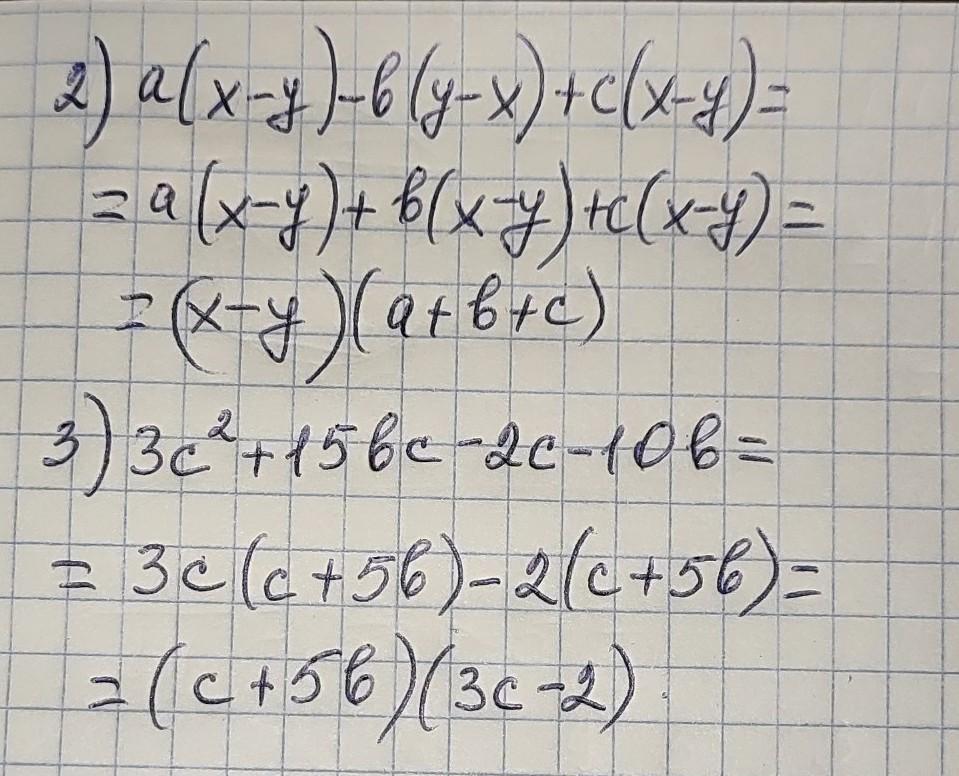 2) a(x-y)-b(y-x)+c(x-y)=
=a(x-y)+b(x-y)+c(x-y)=
=(x-y)(a+b+c)
3) 3c²+15bc-2c-10b=
=3c(c+5b)-2(c+5b)=
=(c+5b)(3c-2)